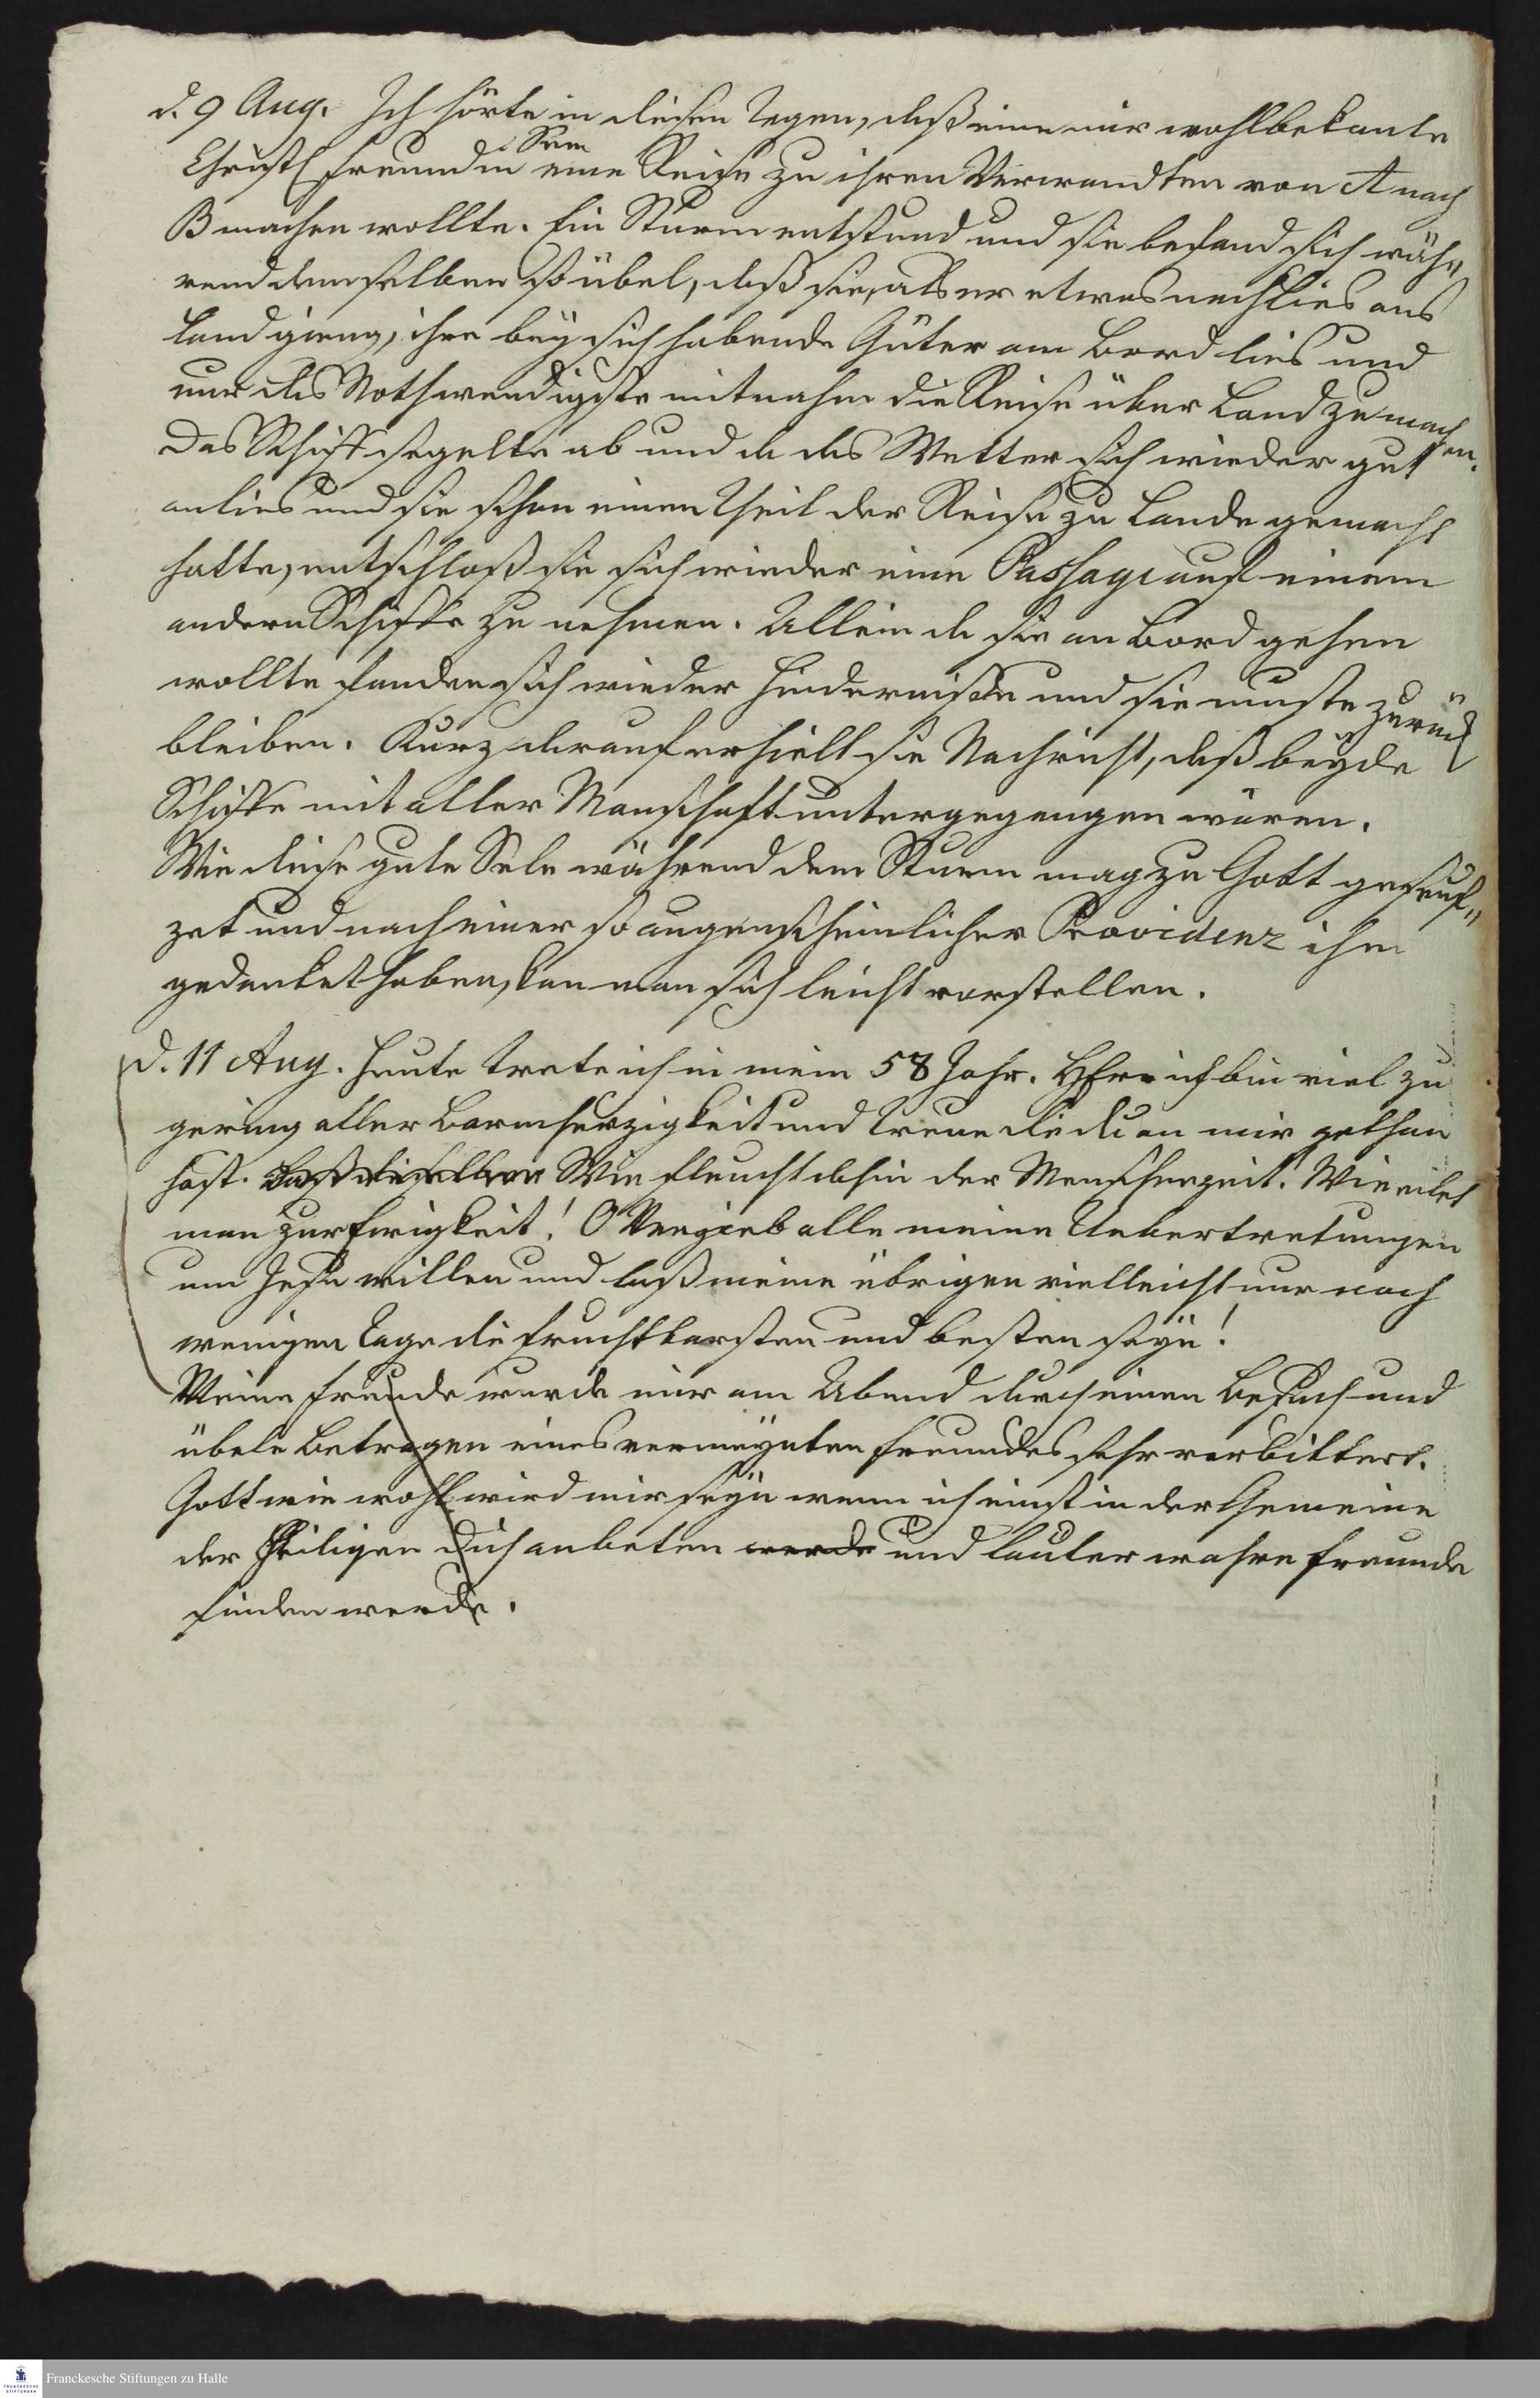 d. 9 Aug. Ich hörte in diesen Tagen, daß eine mir wohlbekante
Christl Freundin eine Reise zu ihren Verwandten von A nach
B machen wollte. Ein Sturm entstund und sie befand sich wäh„
rend demselben so übel, daß sie, als er etwas nachlies ans
Land gieng, ihre bey sich habende Güter am Bord lies und
nur das Nothwendigste mitnahm die Reise über Land zu machen.
Das Schiff segelte ab und da das Wetter sich wieder gut
anlies und sie schon einen Theil der Reise zu Lande gemacht
hatte, entschloß sie sich wieder eine Passage auf einem
andern Schiffe zu nehmen. Allein da sie an Bord gehen
wollte fanden sich wieder Hindernisse und sie muste zurück
bleiben. Kurz darauf erhielt sie Nachricht, daß beyde
Schiffe mit aller Manschaft untergegangen wären.
Wie diese gute Sele während dem Sturm mag zu Gott geseuf„
zet und nach einer so augenscheinlicher Providenz ihm
gedanket haben, kan man sich leicht vorstellen.
d. 11 Aug. Heute trete ich in mein 58 Jahr. HErr ich bin viel zu
gering aller Barmherzigkeit und Treue die du an mir gethan
hast. Wie fleucht dahin der Menschen Zeit! Wie eilet
man zur Ewigkeit! O Vergieb alle meine Uebertretungen
um Jesu willen und laß meine übrigen vielleicht nur noch
wenigen Tage die fruchtbarsten und besten seyn!
Meine Freude wurde mir am Abend durch einen Besuch und
übele Betragen eines vermeynten Freundes sehr verbittert.
Gott wie wohl wird mir seyn wenn ich einst in der Gemeine
der Heiligen dich anbeten werde und lauter wahre Freunde
finden werde.
Franckesche Stiftungen zu Halle